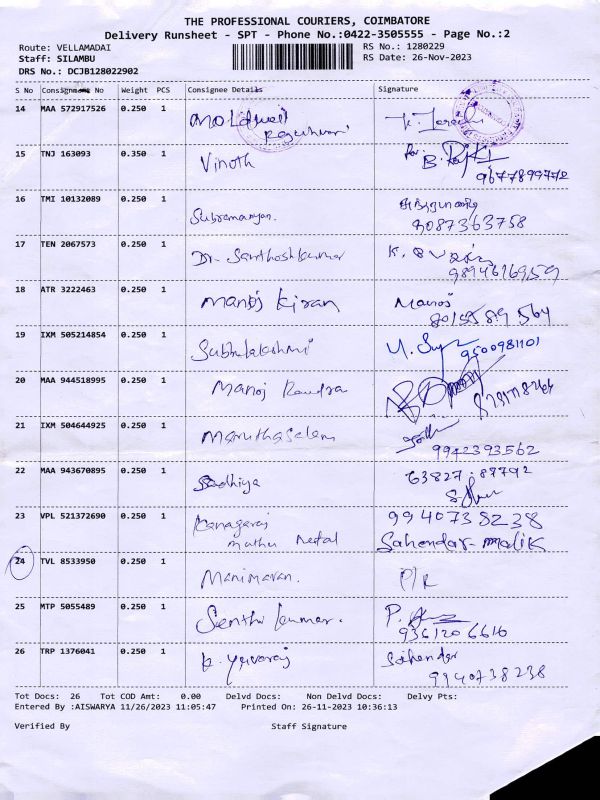 THE PROFESSIONAL COURIERS, COIMBATORE
Delivery Runsheet - SPT - Phone No.:0422-3505555 - Page No.:2
Route: VELLAMADAI RS No.: 1280229
Staff: SILAMBU RS Date: 26-Nov-2023
DRS No.: DCJB128022902
S No Consignment No Weight PCS Consignee Details Signature
14 MAA 572917526 0.250 1
15 TNJ 163093 0.350 1 Vinoth for B.
9677899772
16 TMI 10132089 0.250 1 Subramanyan.
8087363758
17 TEN 2067573 0.250 1 Dr. Santhoshkumar K.
9894616959
18 ATR 3222463 0.250 1 Manoj Kiran Manoj
8015589564
19 IXM 505214854 0.250 1 Subhulakshmi
9500981101
20 MAA 944518995 0.250 1 Manoj
21 IXM 504644925 0.250 1 Maruthasalem
9942393562
22 MAA 943670895 0.250 1 Sadhiya 63827 87792
23 VPL 521372690 0.250 1 Kanagaraj 9940738238
muthu Sahendar madik
24 TVL 8533950 0.250 1 Manimaran. P/R
25 MTP 5055489 0.250 1 Senthil kumar. P.
9361206616
26 TRP 1376041 0.250 1 K. Yuvaraj Sahendar
9940738238
Tot Docs: 26 Tot COD Amt: 0.00 Delvd Docs: Non Delvd Docs: Delvy Pts:
Entered By :AISWARYA 11/26/2023 11:05:47 Printed On: 26-11-2023 10:36:13
Verified By Staff Signature